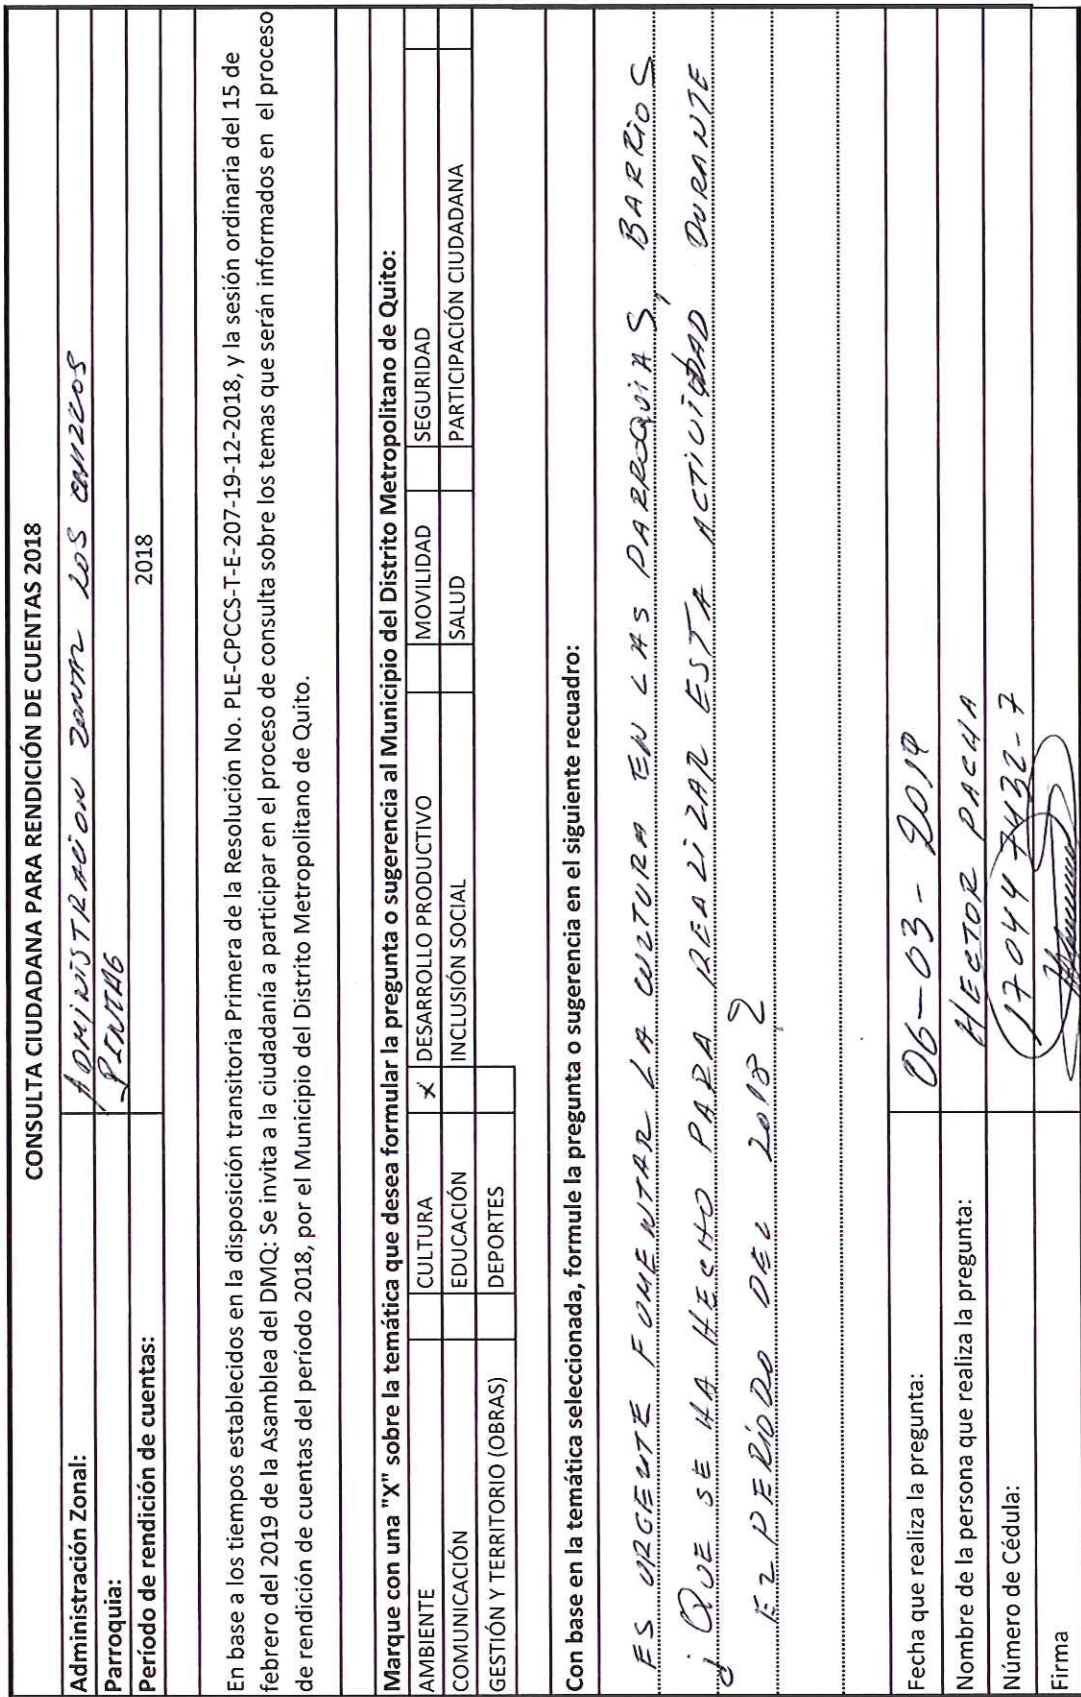 CONSULTA CIUDADANA PARA RENDICIÓN DE CUENTAS 2018
Administración Zonal: ADMINISTRACION ZONAL LOS CHILLOS
Parroquia: PINTAG
Período de rendición de cuentas: 2018
En base a los tiempos establecidos en la disposición transitoria Primera de la Resolución No. PLE-CPCCS-T-E-207-19-12-2018, y la sesión ordinaria del 15 de
febrero del 2019 de la Asamblea del DMQ: Se invita a la ciudadanía a participar en el proceso de consulta sobre los temas que serán informados en el proceso
de rendición de cuentas del período 2018, por el Municipio del Distrito Metropolitano de Quito.
Marque con una "X" sobre la temática que desea formular la pregunta o sugerencia al Municipio del Distrito Metropolitano de Quito:
AMBIENTE CULTURA X DESARROLLO PRODUCTIVO MOVILIDAD SEGURIDAD
COMUNICACIÓN EDUCACIÓN INCLUSIÓN SOCIAL SALUD PARTICIPACIÓN CIUDADANA
GESTIÓN Y TERRITORIO (OBRAS) DEPORTES
Con base en la temática seleccionada, formule la pregunta o sugerencia en el siguiente recuadro:
ES URGENTE FOMENTAR LA CULTURA EN LAS PARROQUIAS, BARRIOS
¿ QUE SE HA HECHO PARA REALIZAR ESTA ACTIVIDAD DURANTE
EL PERÍODO DEL 2018 ?
Fecha que realiza la pregunta: 06-03-2019
Nombre de la persona que realiza la pregunta: HECTOR PACHA
Número de Cédula: 170447432-7
Firma